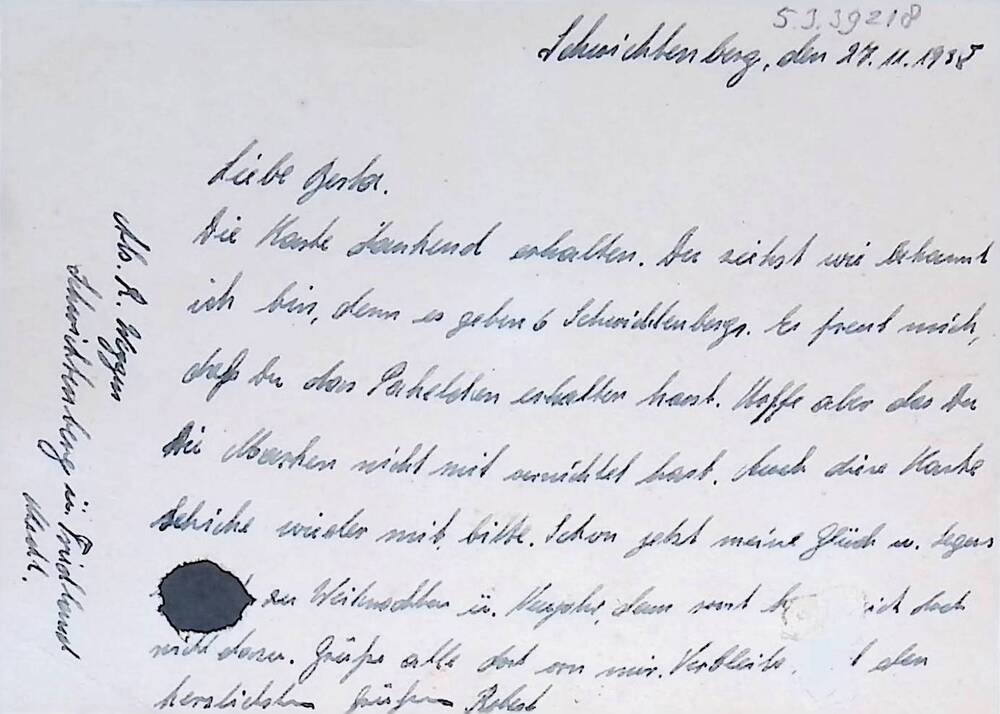 5.3.39218
Schwichtenberg, den 27.11.1938
Liebe Gerda.
Die Karte dankend erhalten. Du siehst wie bekannt
ich bin, denn es geben 6 Schwichtenbergs. Es freut mich,
daß Du das Pakelchen erhalten hast. Hoffe aber das Du
Die Marken nicht mit vernichtet hast. Auch diese Karte
schicke wieder mit, bitte. Schon jetzt meine Glück u. Segens
zu Weihnachten u. Neujahr, denn sonst ich doch
nicht dazu. Grüße alle dort von mir. Verbleibe den
herzlichsten Grüßen Robert
Abs. R.
Schwichtenberg in Friedland
Meckl.